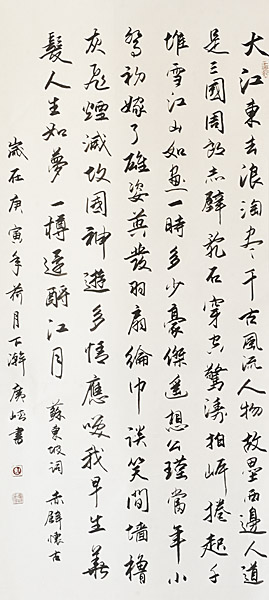 大江東去浪淘盡千古風流人物故壘西邊人道
是三國周郎赤壁亂石穿空驚濤拍岸捲起千
堆雪江山如畫一時多少豪傑遙想公瑾當年小
喬初嫁了雄姿英發羽扇綸巾談笑間墻櫓
灰飛煙滅故國神遊多情應笑我早生華
髮人生如夢一樽還酹江月
蘇東坡詞 赤壁懷古
歲在庚寅年荷月下澣 書